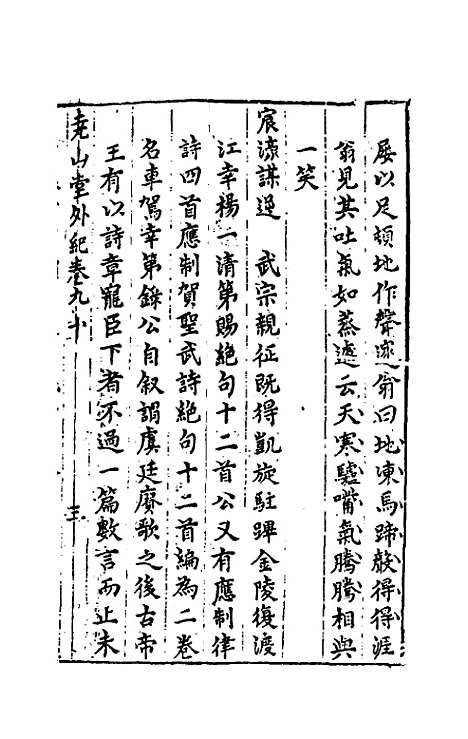 屡以足頓地作聲邃翁曰地凍馬蹄殼得得涯
翁見其吐氣如蒸遽云天寒驢嘴氣騰騰相與
一笑
宸濠謀逆　武宗親征既得凱旋駐蹕金陵復渡
江幸楊一清第賜絶句十二首公又有應制律
詩四首應制賀聖武詩絶句十二首編為二卷
名車駕幸第錄公自叙謂虞廷賡歌之後古帝
王有以詩章寵臣下者不過一篇數言而止未
堯山堂外紀卷九十　三